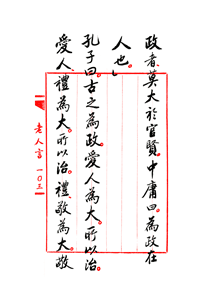 政者莫大於官賢。中庸曰。為政在
人也」
孔子曰。古之為政。愛人為大。所以治。
愛人。禮為大。所以治。禮。敬為大。敬
老人言 一〇三